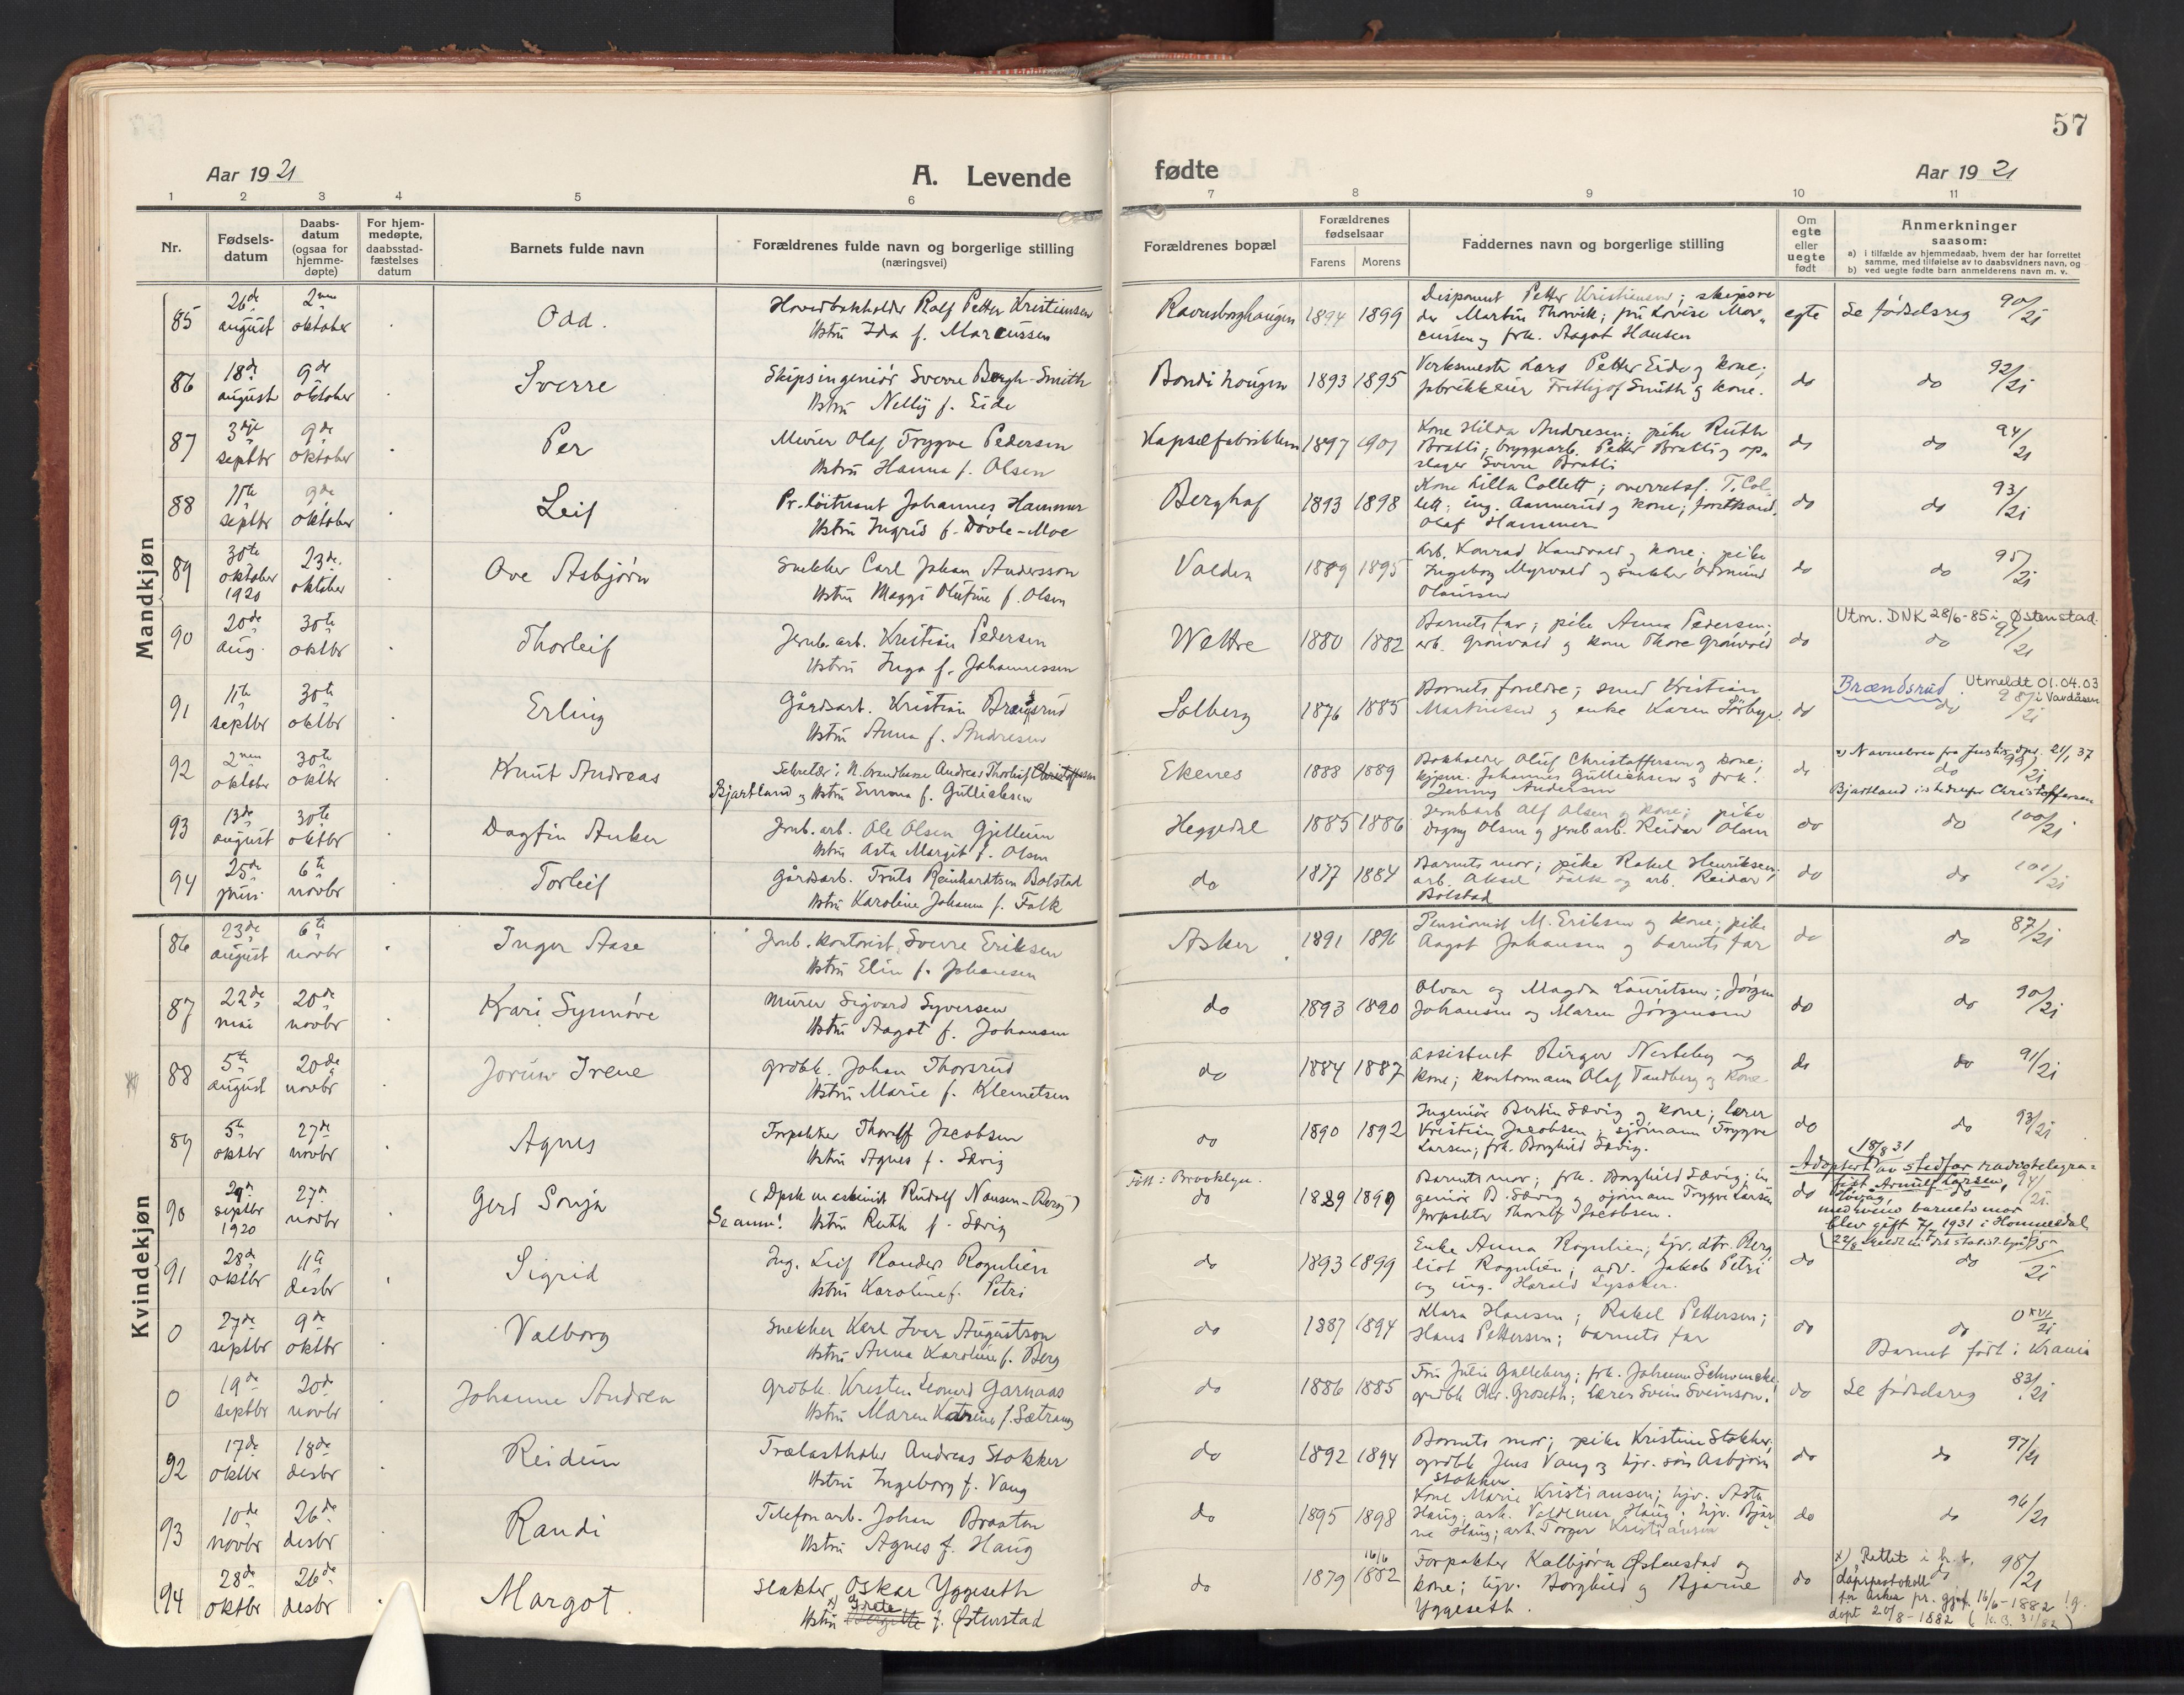 57
Aar 1921
A. Levende
fødte
Aar 1921
1 2 3 4 5 6 7 8 9 10 11
Nr.
Fødsels-
datum
Daabs-
datum
(ogsaa for
hjemme-
døpte)
For hjem-
medøpte,
daabsstad-
fæstelses
datum
Barnets fulde navn
Forældrenes fulde navn og borgerlige stilling
(næringsvei)
Forældrenes bopæl
Forældrenes
fødselsaar
Farens Morens
Faddernes navn og borgerlige stilling
Om
egte
eller
uegte
født
Anmerkninger
saasom:
a) i tilfælde av hjemmedaab, hvem der har forrettet
samme, med tilføielse av to daabsvidners navn, og
b) ved uegte fødte barn anmelderens navn m. v.
Mandkjøn
85 26de august 2nen oktober Odd.
Hovedbokholder Rolf Petter Kristiansen
Hstru Ida f. Marcussen
Ravnsborghaugen 1894 1899
Disponent Petter Kristiansen; skipsre
der Martin Thorvik; fru Lovise Mar-
cussen og frk. Aagot Hansen
egte Se fødselsreg 90/21
86 18de august 9de oktober Sverre
Skipsingeniør Sverre Bergh-Smith
Hstru Nelly f. Eide
Bondi haugen 1893 1895
Verksmester Lars Petter Eide og kone;
fabrikkeier Frithjof Smith og kone.
do do 92/21
87 3dje septbr 9de oktober Per
Murer Olaf Trygve Pedersen
Hstru Hanna f. Olsen
Kapselfabrikken 1897 1901
Kone Hilda Andresen; pike Ruth
Bratli; bryggearb. Petter Bratli og op-
slager Sverre Bratli
do do 94/21
88 11te septbr 9de oktober Leif
Pr.løitnant Johannes Hammer
Hstru Ingrid f. Dövle-Moe
Berghof 1893 1898
Kone Lilla Collett; overretssf. T. Col-
lett; ing. Aannerud og kone;
Olaf Hammer
do do 93/21
89 30te oktober 1920 23de oktober Ove Asbjørn
Snekker Carl Johan Andersson
Hstru Maggi Olufine f. Olsen
Valden 1889 1895
Arb. Konrad Kandvald og kone; pike
Ingeborg Myrvold og snekker Osmund
Olaussen
do do 95/21
90 20de aug. 30te oktbr Thorleif
Jernb. arb. Kristian Pedersen
Hstru Inga f. Johannessen
Wettre 1880 1882
Barnets far; pike Anna Pedersen;
arb. Grønvold og kone Thora Grønvold
do Utm. DNK 28/6-85 i Østenstad.
do 97/21
91 11te septbr 30te oktbr Erling
Gårdsarb. Kristian Brændsrud
Hstru Anna f. Andresen
Solberg 1876 1885
Barnets foreldre; smed Kristian
Martinsen og enke Karen Sørbye.
do Brændsrud. Utmeldt 01.04.03
do 98/21 i Vardåsen
92 2nen oktober 30te oktbr Knut Andreas
Sekretær i N. brandkasse Andreas Thorleif Christoffersen
Bjartland og Hstru Emma f. Gullichsen
Ekenes 1888 1889
Bokholder Oluf Christoffersen og kone;
kjpm. Johannes Gullichsen og frk.
Jenny Andersen
do x) Navnebrev fra Justisdpt. 21/1 37
do 99/21
Bjartland istedenfor Christoffersen
93 13de august 30te oktbr Dagfin Anker
Jernb. arb. Ole Olsen Gjellum
Hstru Asta Margit f. Olsen
Heggedal 1885 1886
Jernbarb Alf Olsen og kone; pike
Dagny Olsen og jernbarb. Reidar Olsen
do do 100/21
94 25de juni 6te novbr Torleif
Gårdsarb. Truls Reinhardtsen Bolstad
Hstru Karoline Johanne f. Falk
do 1877 1884
Barnets mor; pike Rakel Henriksen;
arb. Aksel Falk og arb. Reidar
Bolstad
do do 101/21
Kvindekjøn
86 23de august 6te novbr Inger Aase
Jernb. kontorist Sverre Eriksen
Hstru Elin f. Johansen
Asker 1891 1896
Pensionist M. Eriksen og kone; pike
Aagot Johansen og barnets far
do do 87/21
87 22de mai 20de novbr Kari Synnøve
Murer Sigvard Syversen
Hstru Aagot f. Johansen
do 1893 1890
Olvar og Magda Lauritsen; Jørgen
Johansen og Maren Jörgensen
do do 90/21
88 5te august 20de novbr Jorun Irene
Grdbk. Johan Thorsrud
Hstru Marie f. Klemetsen
do 1884 1887
Assistent Birger Nesteby og
kone; kontormann Olaf Tandberg og kone.
do do 91/21
89 5te oktbr 27de novbr Agnes
Forpakter Thoralf Jacobsen
Hstru Agnes f. Sævig
do 1890 1892
Ingeniör Bertin Sævig og kone; lærer
Kristian Jacobsen; sjömann Trygve
Larsen; frk. Borghild Sævig.
do do 93/21
90 29de septbr 1920 27de novbr Gerd Sonja
(Dpsk maskinist Rudolf Nansen-Berg)
Se anm! Hstru Ruth f. Sævig
Født i Brooklyn.
do 1889 1899
Barnets mor; frk. Borghild Sævig; in
geniör B. Sævig og sjömann Trygve Larsen
forpakter Thoralf Jacobsen.
do 18/8 31
Adoptert av stedfar radiotelegra-
fist Arnulf Larsen, 94/21
med hvem barnets mor
blev gift 7/7 1931 i Hommedal
91 28de oktbr 11te desbr Sigrid
Ing. Leif Rander Rogulien
Hstru Karoline f. Petri
do 1893 1899
Enke Anna Rogulien; hjv. dtr. Berg
liot Rogulien; adv. Jakob Petri
og ing. Harald Lysaker.
do do 95/21
0 27de septbr 9de oktbr Valborg
Snekker Karl Ivar Augustson
Hstru Anna Karoline f. Berg
do 1887 1894
Klara Hansen; Rakel Pettersen;
Hans Pettersen; barnets far
do do 0
Barnet født i Krania
0 19de septbr 20de novbr Johanne Andrea
Grdbk. Kresten Leonard Garnaas
Hstru Maren Katrine f. Sætrang
do 1886 1885
Fru Julie Gulleberg; frk. Johanne Schwencke;
grdbk Chr. Groseth; lærer Svein Sveinson.
do Se fødselsreg 83/21
92 17de oktbr 18de desbr Reidun
Trælasthdlr Andreas Stokker
Hstru Ingeborg f. Vang
do 1892 1894
Barnets mor; pike Kristine Stokker;
grdbk Jens Vang og hjv. søn Asbjørn
Stokker
do do 97/21
93 10de novbr 26de desbr Randi
Telefonarb. Johan Braaten
Hstru Agnes f. Haug
do 1895 1898
Kone Marie Kristiansen; hjv. Asta
Haug; arb. Valdemar Haug; hjv. Bjar-
ne Haug; arb. Torger Kristiansen
do do 96/21
94 28de oktbr 26de desbr Margot.
Slakter Oskar Yggeseth
x) Grete
Hstru f. Østenstad
do 1879 16/6 1882
Forpakter Kalbjørn Østenstad og
kone; hjv. Borghild og Bjarne
Yggeseth.
do x) Rettet i h. t. 98/21
dåpsprotokoll
for Asker pr. gj. f. 16/6-1882
døpt 20/8-1882 (k.B. 31/82)